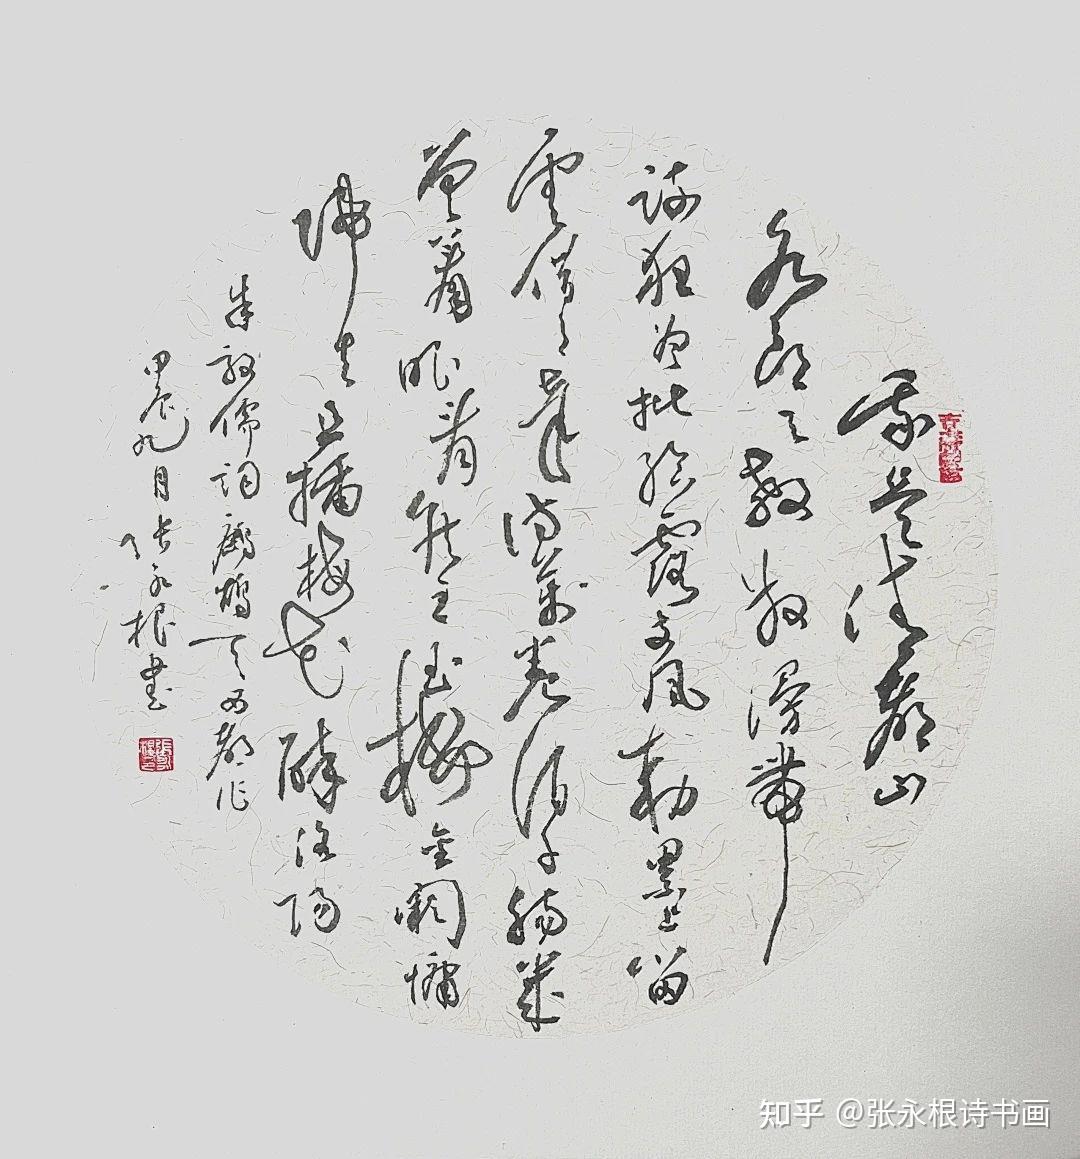 我是清都山
水郎天教散漫帶
疎狂曾批给露支风敕累上留
雲借月章诗萬卷酒千觞幾
曾着眼看侯王玉樓金阙慵
归去且插梅花醉洛阳
朱敦儒词鹧鸪天西都作
甲辰九月张永根书
知乎 @张永根诗书画